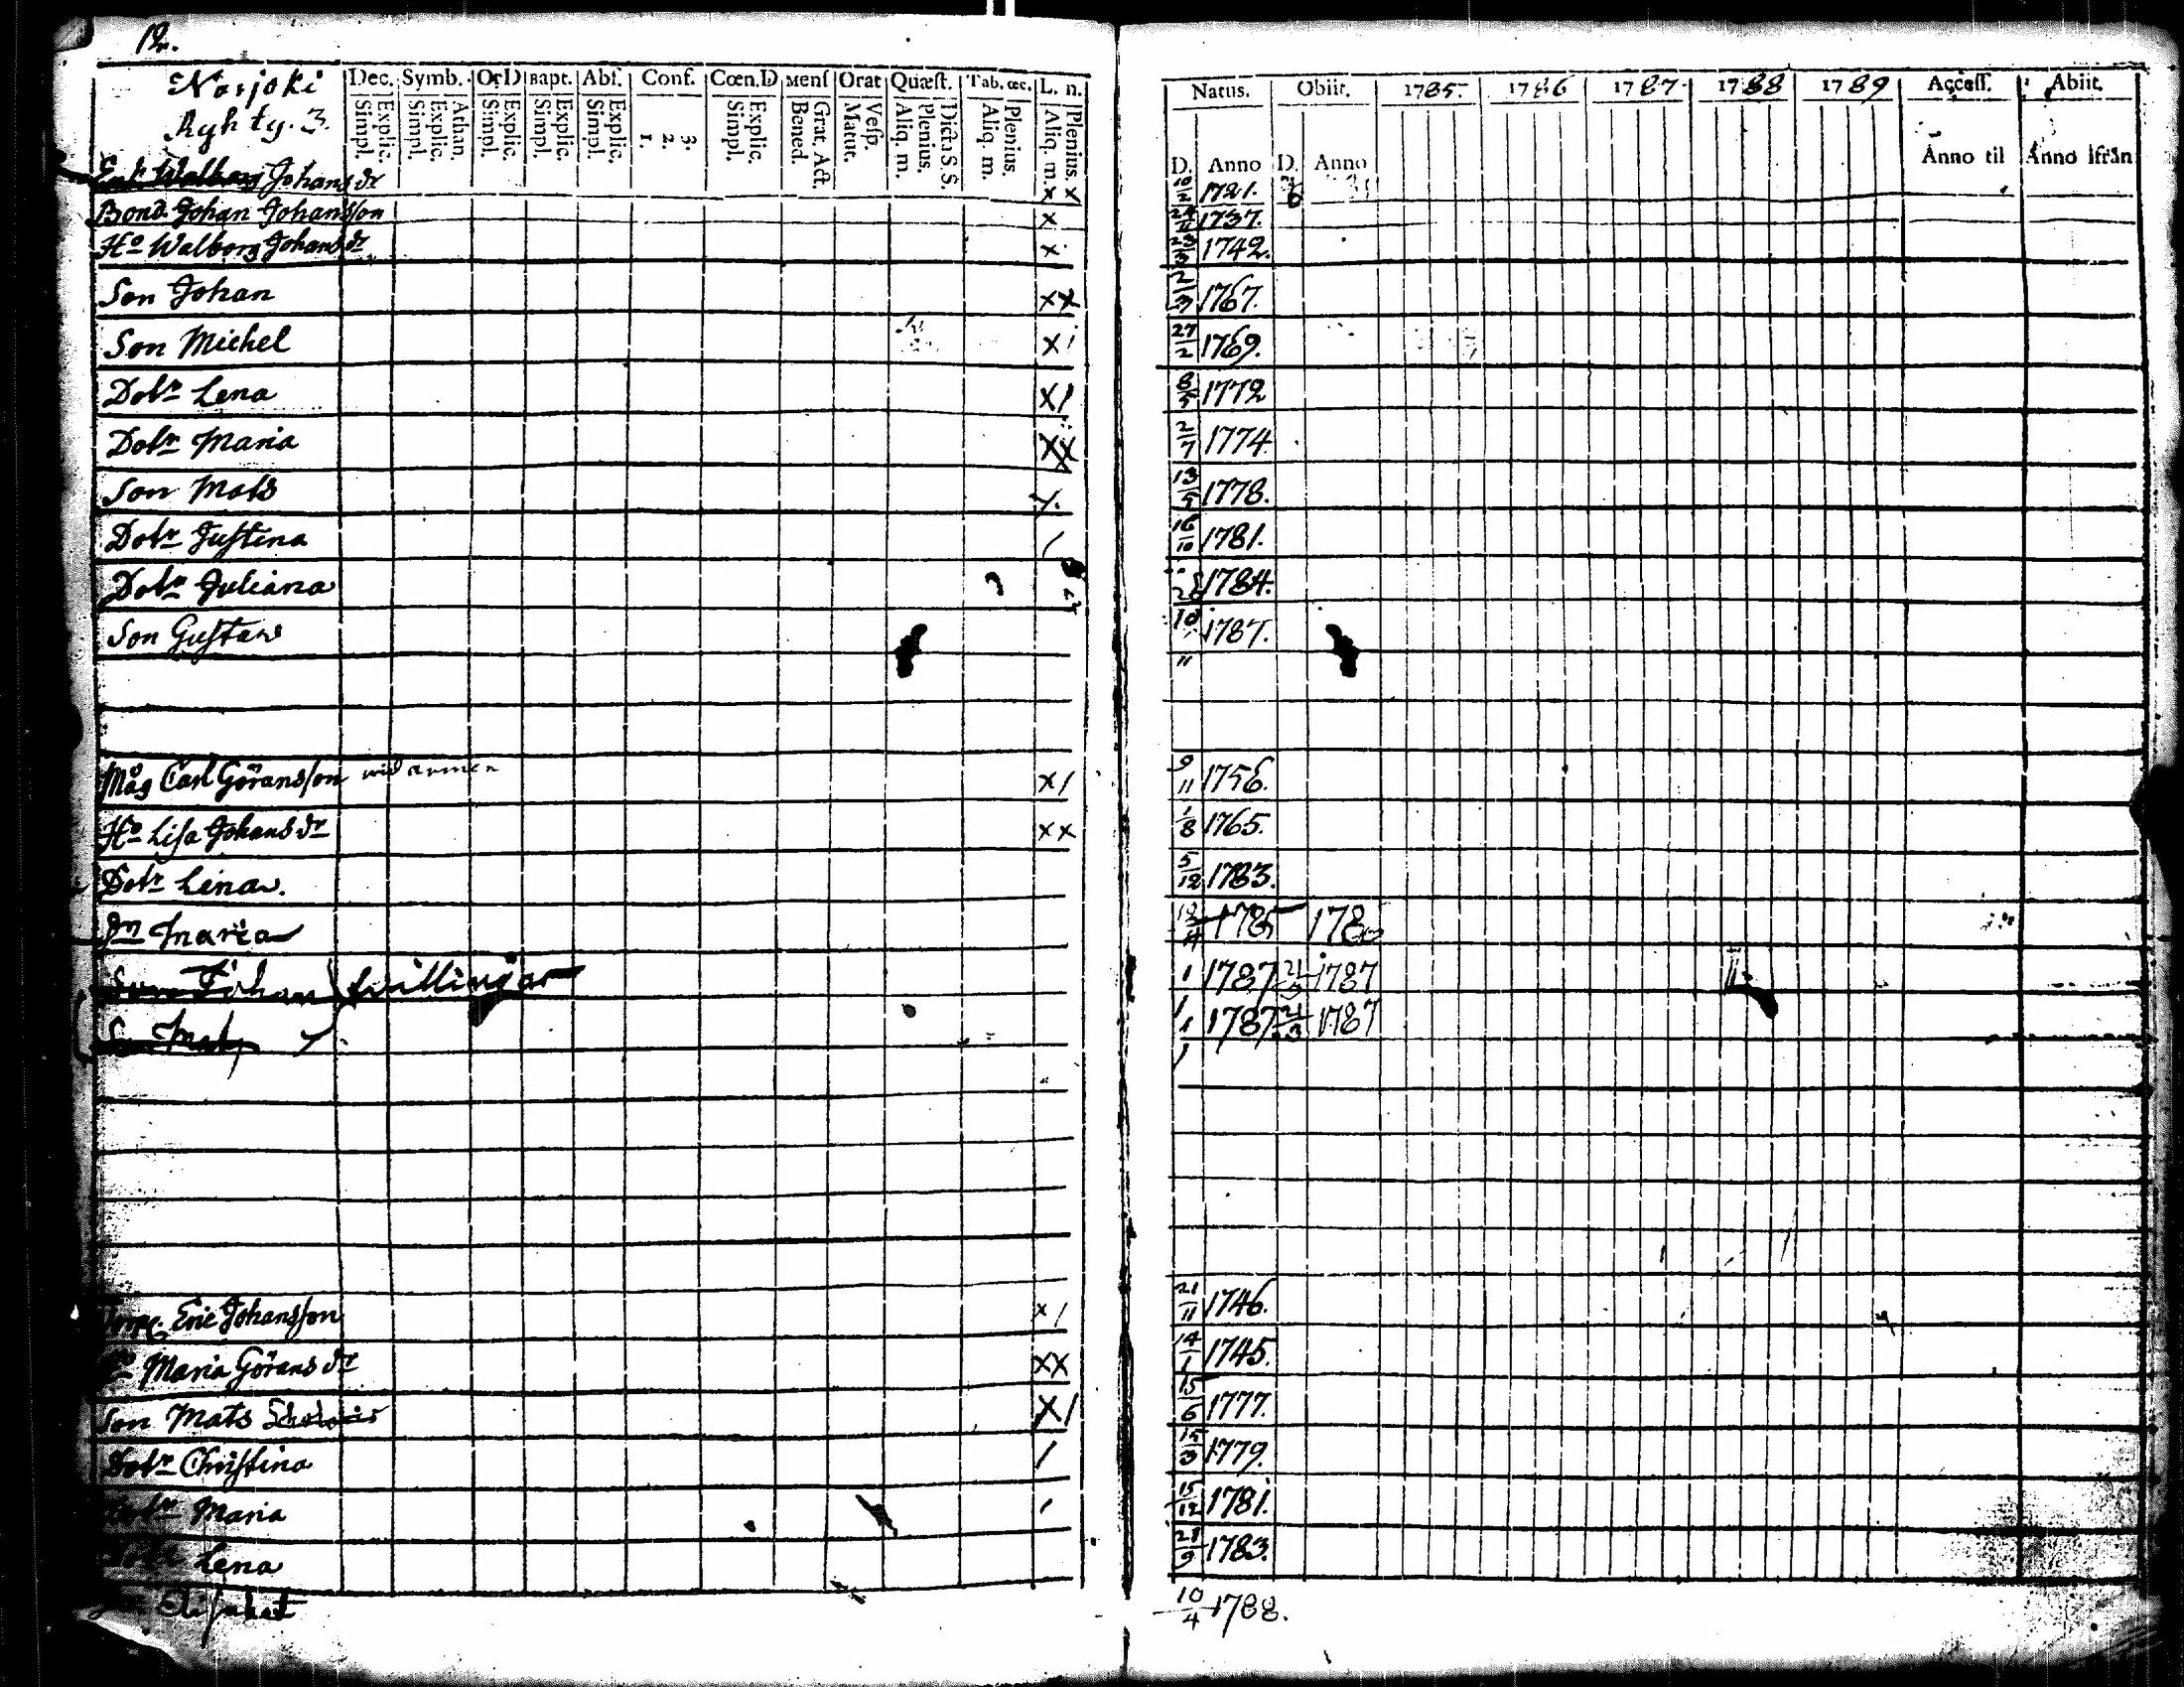 12.
Norjoki
Ryhty. 3.
Dec. Symb. Or D Bapt. Abs. Conf. Cœn. D Mens Orat Quæst. Tab. œc. L. n.
Explic. Simpl. Athan. Explic. Simpl. Explic. Simpl. Explic. Simpl. Explic. Simpl. 3. 2. 1. Explic. Simpl. Grat. Act. Bened. Vesp. Matut. Dicta S. S. Plenius. Aliq. m. Plenius. Aliq. m. Plenius. Aliq. m.
Natus. Obiit. 1785. 1786 1787 1788 1789 Access. Abiit.
D. Anno D. Anno Anno til Anno ifrån
Enk. Walborg Johans dr x x 10/2 1721.
Bond. Johan Johansson x 1737.
Ho Walborg Johans dr x 1742.
Son Johan xx 2/3 1767.
Son Michel x/ 27/2 1769.
Dotr Lena x/ 8/5 1772
Dotr Maria xx 2/7 1774.
Son Mats x 13/5 1778.
Dotr Justina / 16/10 1781.
Dotr Juliana 1784.
Son Gustaw 10/11 1787.
Måg Carl Göransson x/ 9/11 1756.
Ho Lisa Johans dr xx 1/8 1765.
Dotr Lena. 5/12 1783.
Dr Maria 1785
Son Johan tvillingar 1 1787 21/3 1787
Son Mats 1/1 1787 21/3 1787
Torp. Eric Johansson x/ 21/11 1746.
Ho Maria Görans dr xx 14/1 1745.
Son Mats x/ 15/6 1777.
Dotr Christina / 15/3 1779.
Dotr Maria / 15/12 1781.
Dotr Lena 1783.
Elisabet 10/4 1788.